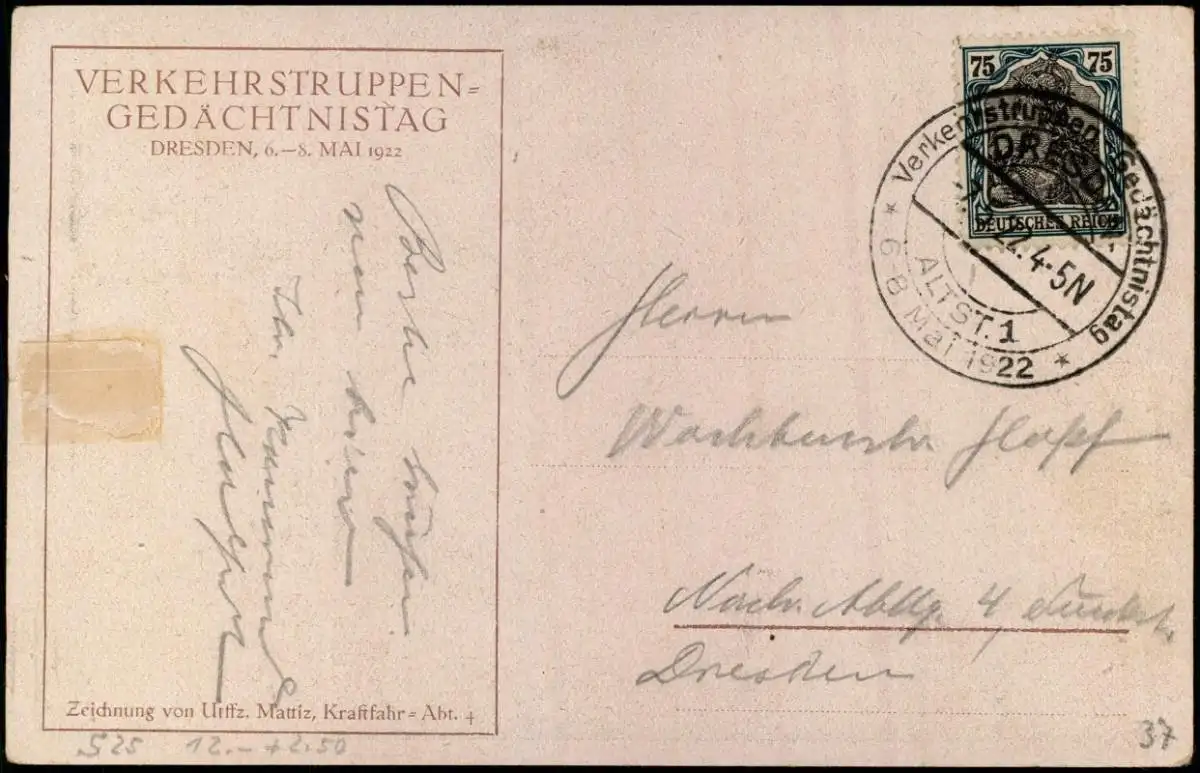 VERKEHRSTRUPPEN=
GEDÄCHTNISTAG
DRESDEN, 6.–8. MAI 1922
Beste Grüße
von hier
Ihr Kamerad
Zeichnung von Utffz. Mattiz, Kraftfahr=Abt. 4
525 12.– +2.50
75 75
DEUTSCHES REICH
* Verkehrstruppen Gedächtnistag *
6-8 Mai 1922
DRESD
22. 4-5N
ALTST. 1
Herrn
Nachr. Abtlg. 4
Dresden
37